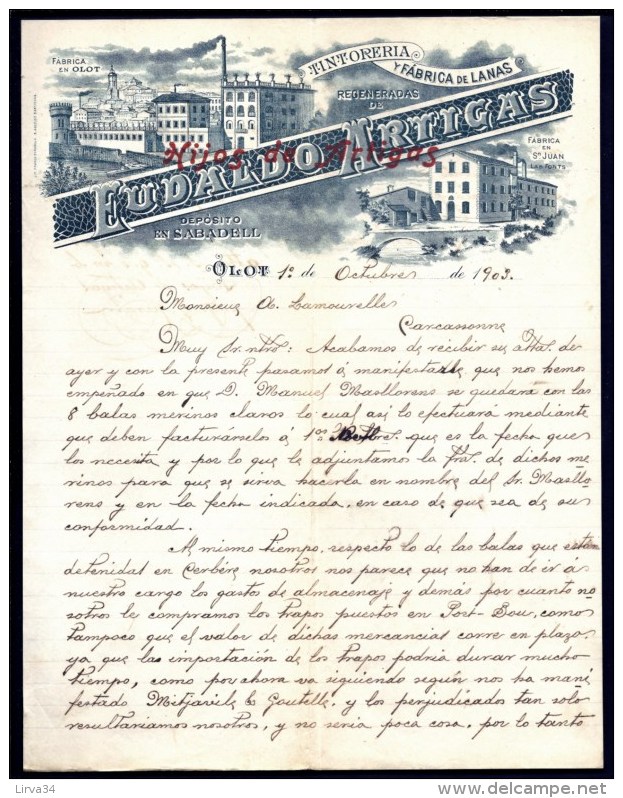 FÁBRICA
EN OLOT
TINTORERIA
Y FÁBRICA DE LANAS
REGENERADAS
DE
EUDALDO ARTIGAS
Hijos de Artigas
FÁBRICA
EN
Sn JUAN
LAS FONTS
DEPÓSITO
EN SABADELL
OLOT 1º de Octubre de 1903.
Monsieur A. Lamourelle
Carcassonne
Muy Sr. ntro: Acabamos de recibir su atta. de
ayer y con la presente pasamos á manifestarle que nos hemos
empeñado en que D. Manuel Masllorens se quedara con las
8 balas merinos claros lo cual asi lo efectuará mediante
que deben facturárselos á 1os que es la fecha que
los necesita y por lo que le adjuntamos la fra. de dichos me
rinos para que se sirva hacerla en nombre del Sr. Masllo
rens y en la fecha indicada, en caso de que sea de su
conformidad.
Al mismo tiempo, respecto lo de las balas que están
detenidas en Cerbére nosotros nos parece que no han de ir á
nuestro cargo los gastos de almacenaje y demás por cuanto no
sotros le compramos los trapos puestos en Port-Bou, como
tampoco que el valor de dichas mercancias corre en plazo
ya que las importación de los trapos podria durar mucho
tiempo, como por ahora va siguiendo según nos ha mani
festado Mitjavile & Goutelle, y los perjudicados tan solo
resultariamos nosotros, y no seria poca cosa, por lo tanto
Lirva34
delcampe.net